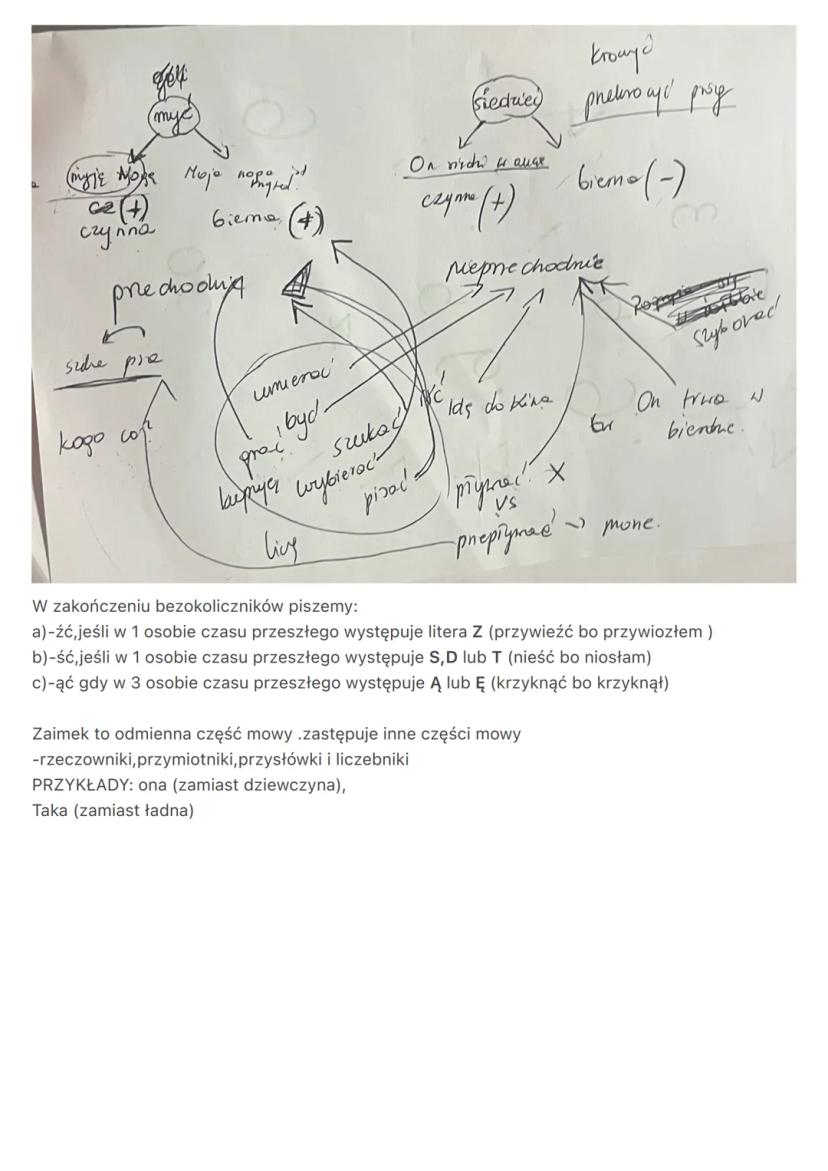 kroczyć
myć
siedzieć
On siedzi w auce
czynna (+)
bierna (-)
Moja noga jest
(+)
czynna
bierna (+)
przechodnie
nieprzechodnie
kogo co?
umierać
być
grać
szukać
kupuję
wybierać
pisać
liczę
iść
Idę do kina
On trwa w
pływać X
vs
przepłynąć -> morze.
W zakończeniu bezokoliczników piszemy:
a)-źć,jeśli w 1 osobie czasu przeszłego występuje litera Z (przywieźć bo przywiozłem )
b)-ść,jeśli w 1 osobie czasu przeszłego występuje S,D lub T (nieść bo niosłam)
c)-ąć gdy w 3 osobie czasu przeszłego występuje Ą lub Ę (krzyknąć bo krzyknął)
Zaimek to odmienna część mowy .zastępuje inne części mowy
-rzeczowniki,przymiotniki,przysłówki i liczebniki
PRZYKŁADY: ona (zamiast dziewczyna),
Taka (zamiast ładna)